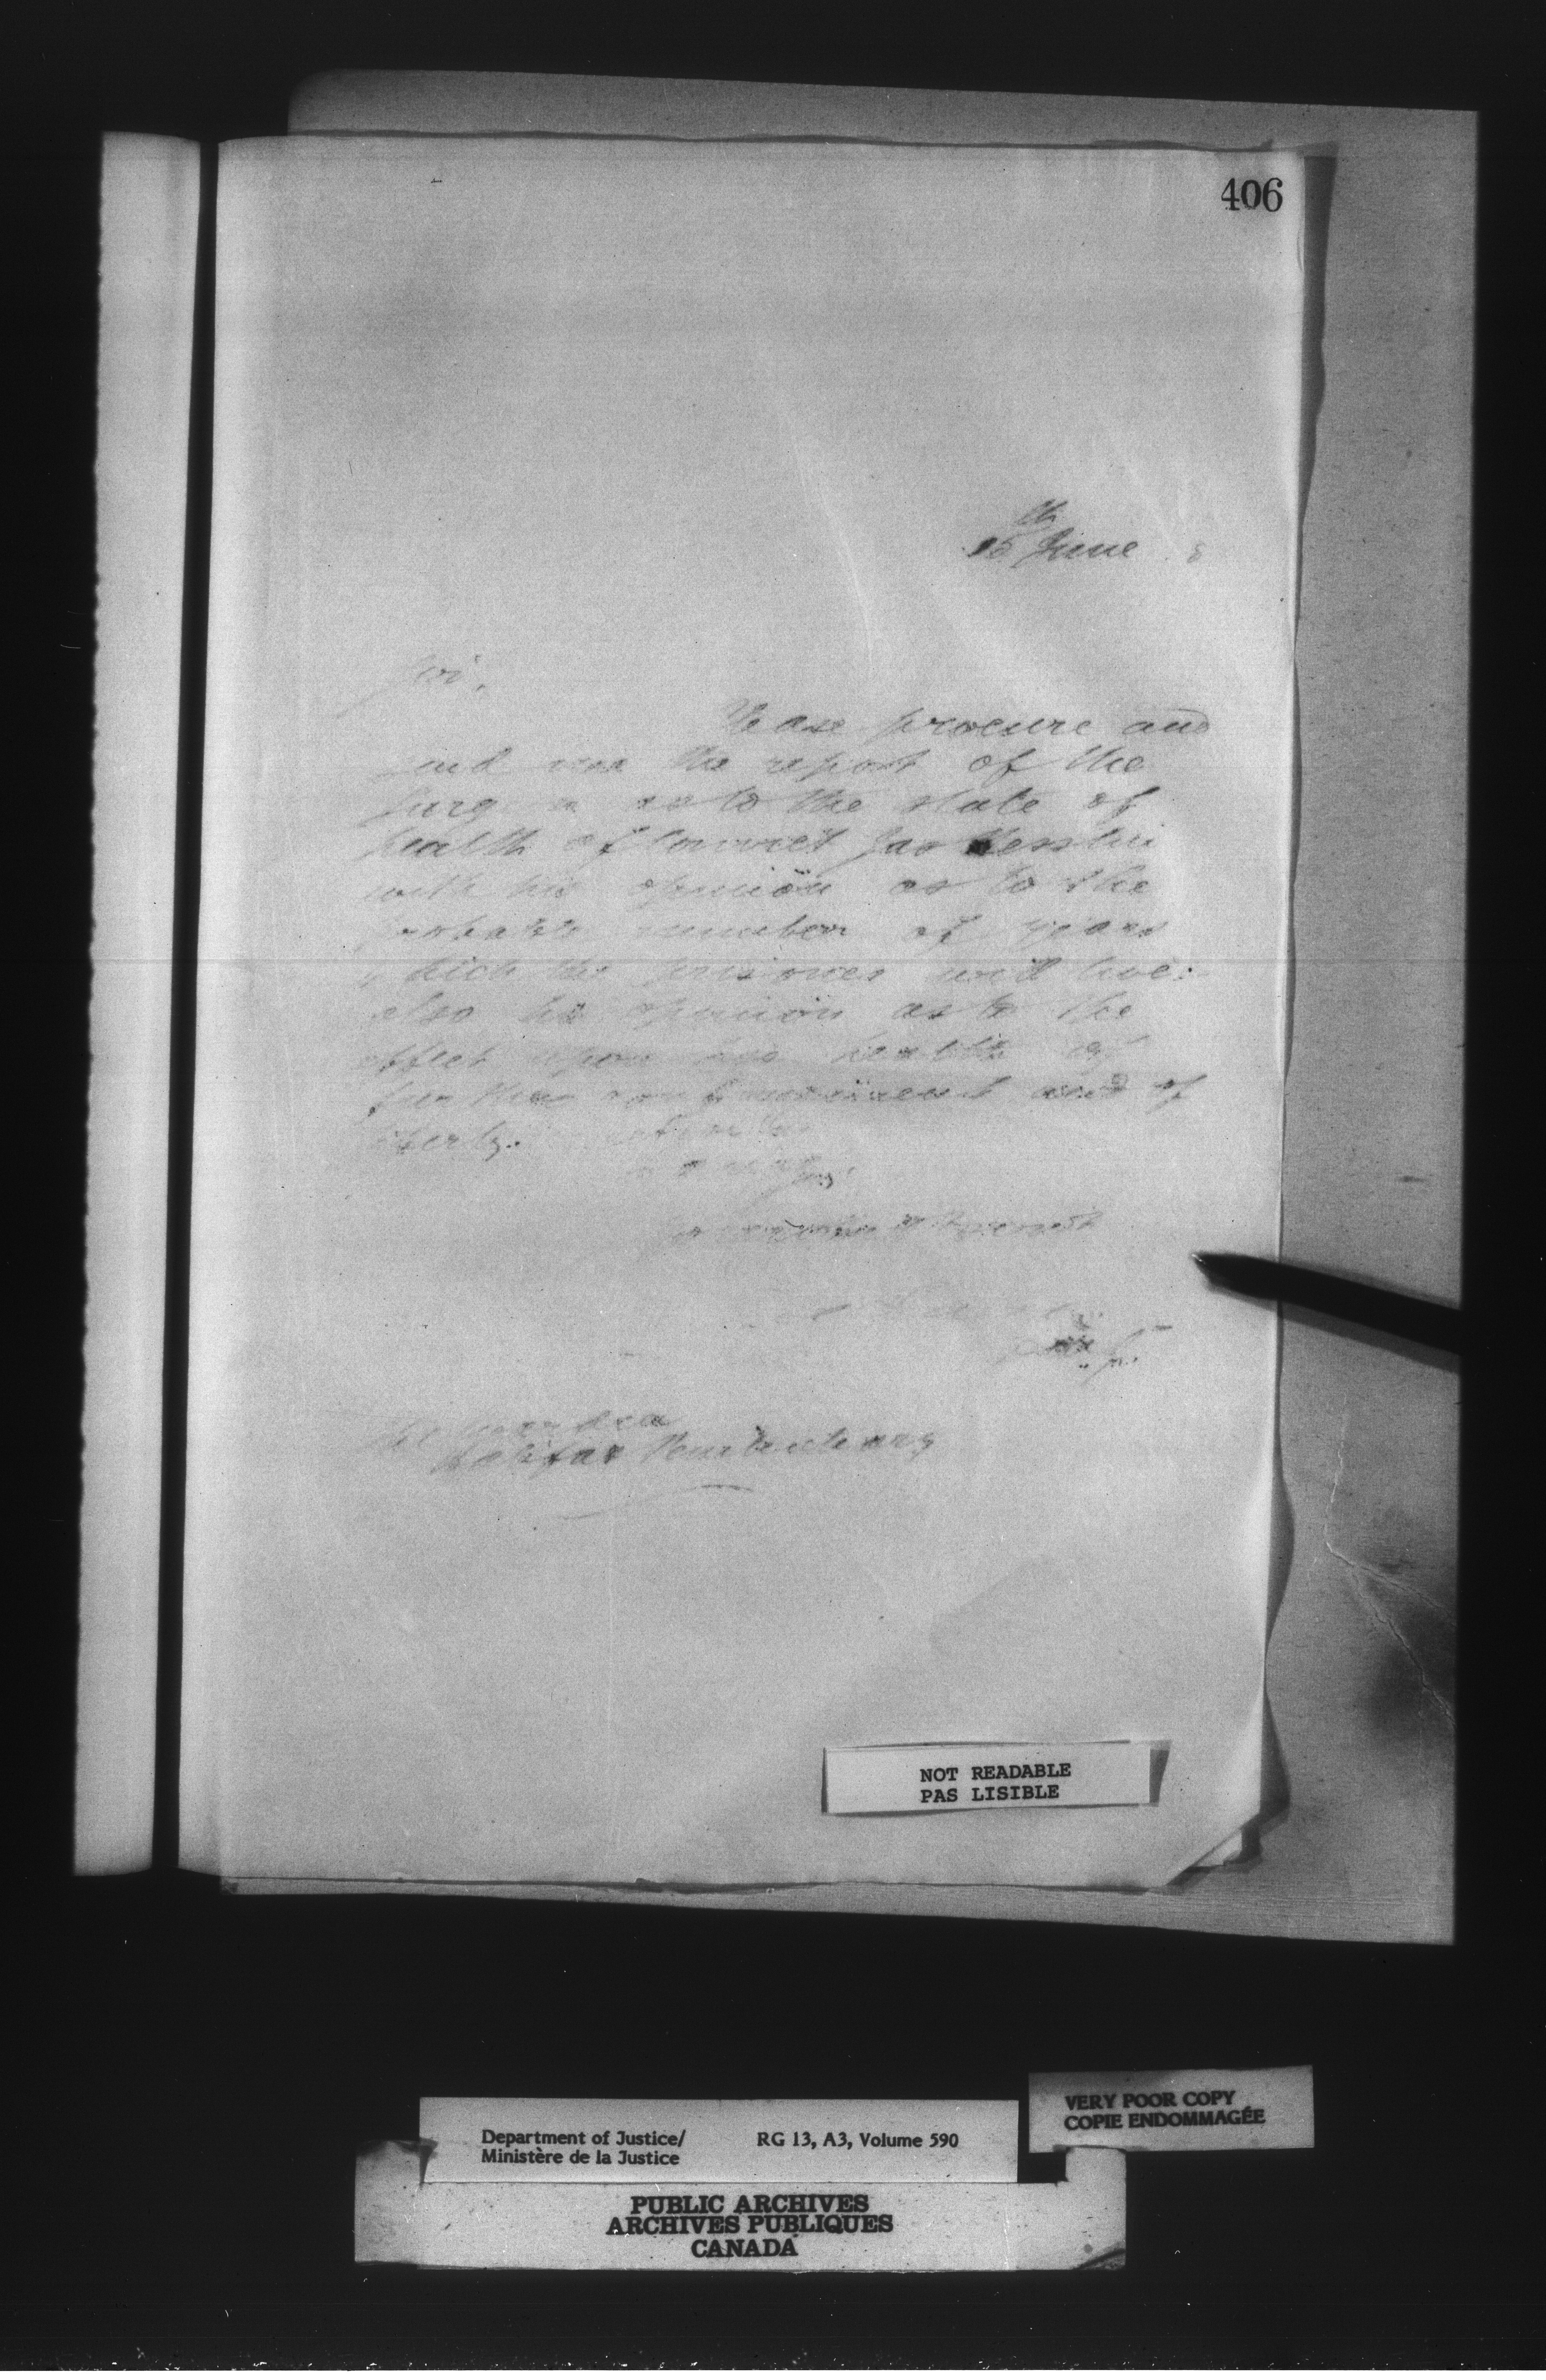 406
15th June
Sir,
Please procure and
send me the report of the
as to the state of
health of Convict Jas
with his opinion as to the
probable number of years
which the prisoner will live:
also his opinion as to the
effect upon his health of
further confinement and of
liberty.
Halifax Penitentiary
NOT READABLE
PAS LISIBLE
VERY POOR COPY
COPIE ENDOMMAGÉE
Department of Justice/ RG 13, A3, Volume 590
Ministère de la Justice
PUBLIC ARCHIVES
ARCHIVES PUBLIQUES
CANADA